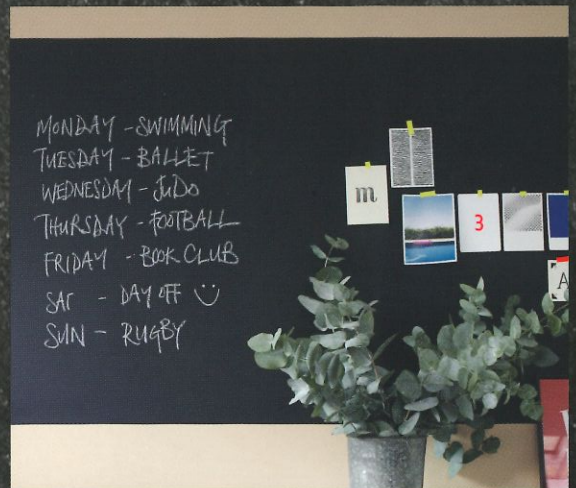 MONDAY - SWIMMING
TUESDAY - BALLET
WEDNESDAY - JUDO
THURSDAY - FOOTBALL
FRIDAY - BOOK CLUB
SAT - DAY OFF
SUN - RUGBY
m
3
A